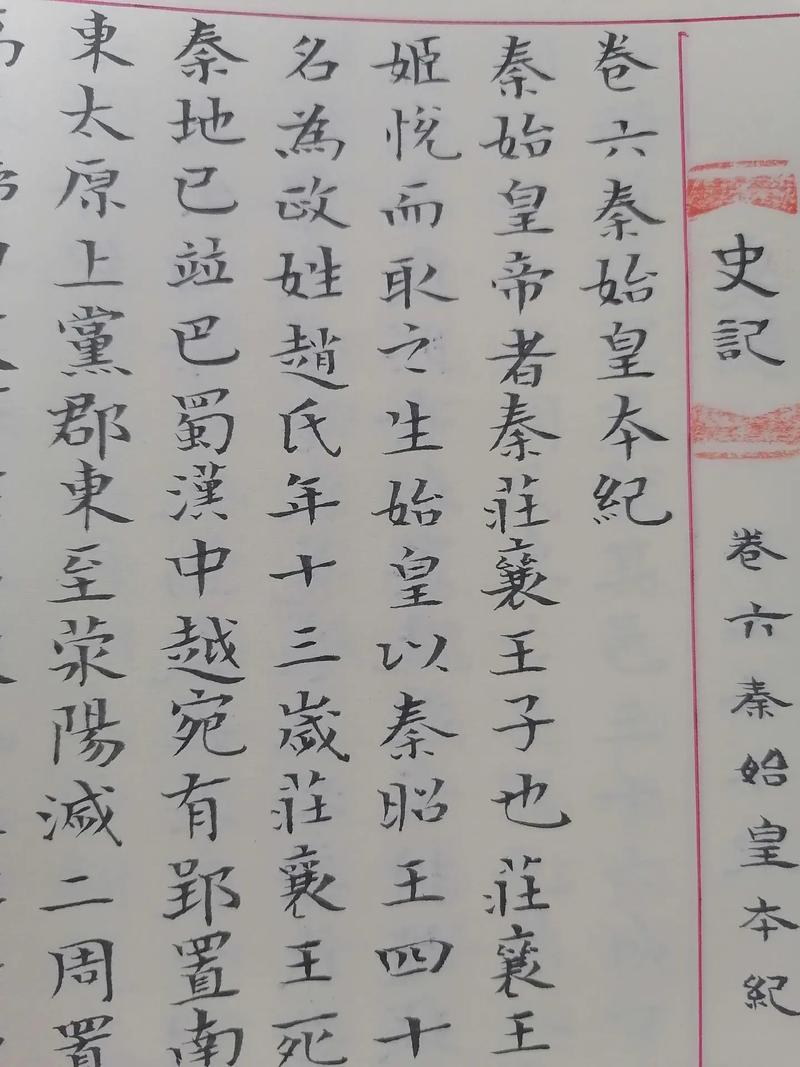 史記
卷六秦始皇本紀
卷六秦始皇本紀
秦始皇帝者秦莊襄王子也莊襄王
姬悅而取之生始皇以秦昭王四十
名為政姓趙氏年十三歲莊襄王死
秦地已竝巴蜀漢中越宛有郢置南
東太原上黨郡東至滎陽滅二周置